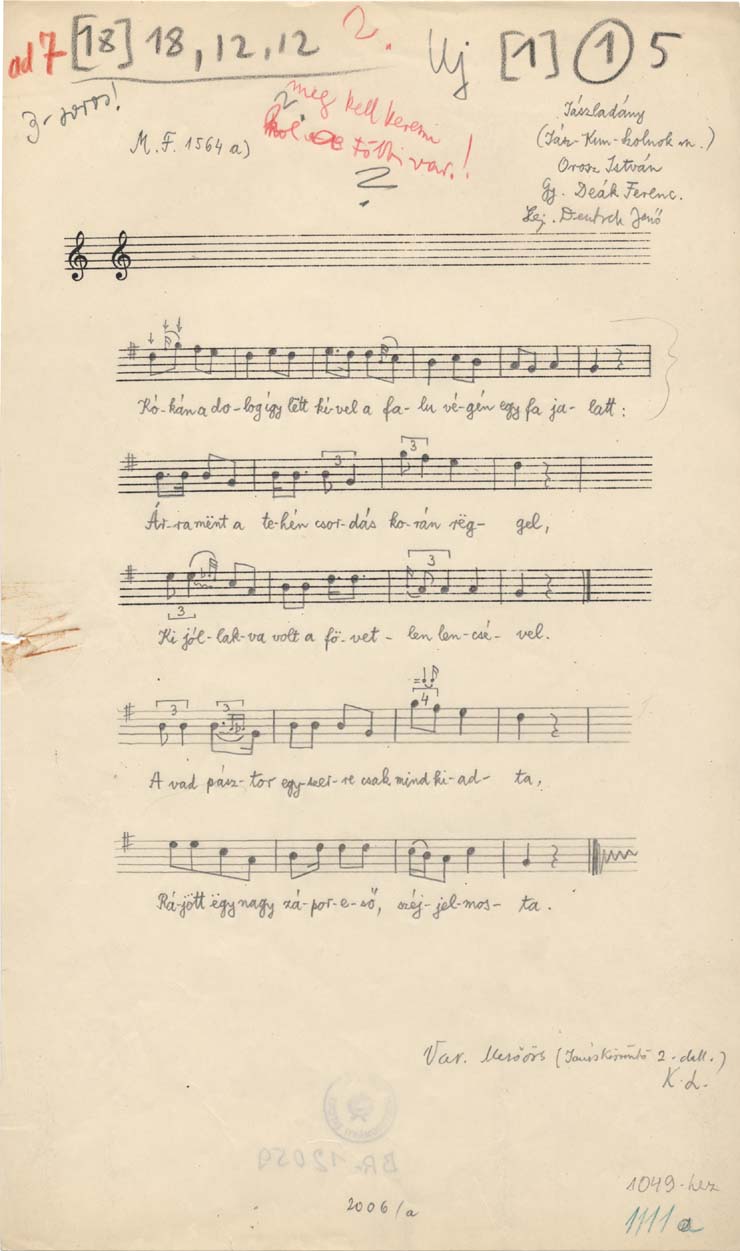 ad 7 [18] 18, 12, 12 2. Uj [1] 1 5
3-soros!
M. F. 1564 a)
2. meg kell keresni
hol a többi var.!
?
Jászladány
(Jász-Kun-Szolnok m.)
Orosz István
Gy. Deák Ferenc.
Lej. Deutsch Jenő
Kó-kán a do-log így lëtt ki-vel a fa- lu vé-gén egy fa ja- latt:
3 3
Ár-ra mënt a te-hén csor-dás ko-rán rëg- gel,
3 3
Ki jól-lak-va volt a fö-vet- len len-csé- vel.
3 3 4
A vad pász-tor egy-szer-re csak mind ki-ad- ta,
Rá-jött ëgy nagy zá-por-e-ső, széj-jel-mos- ta.
Var. Mezőörs ( 2-dall.)
K. L.
BR. 12059
2006/a
1049-hez
1111a